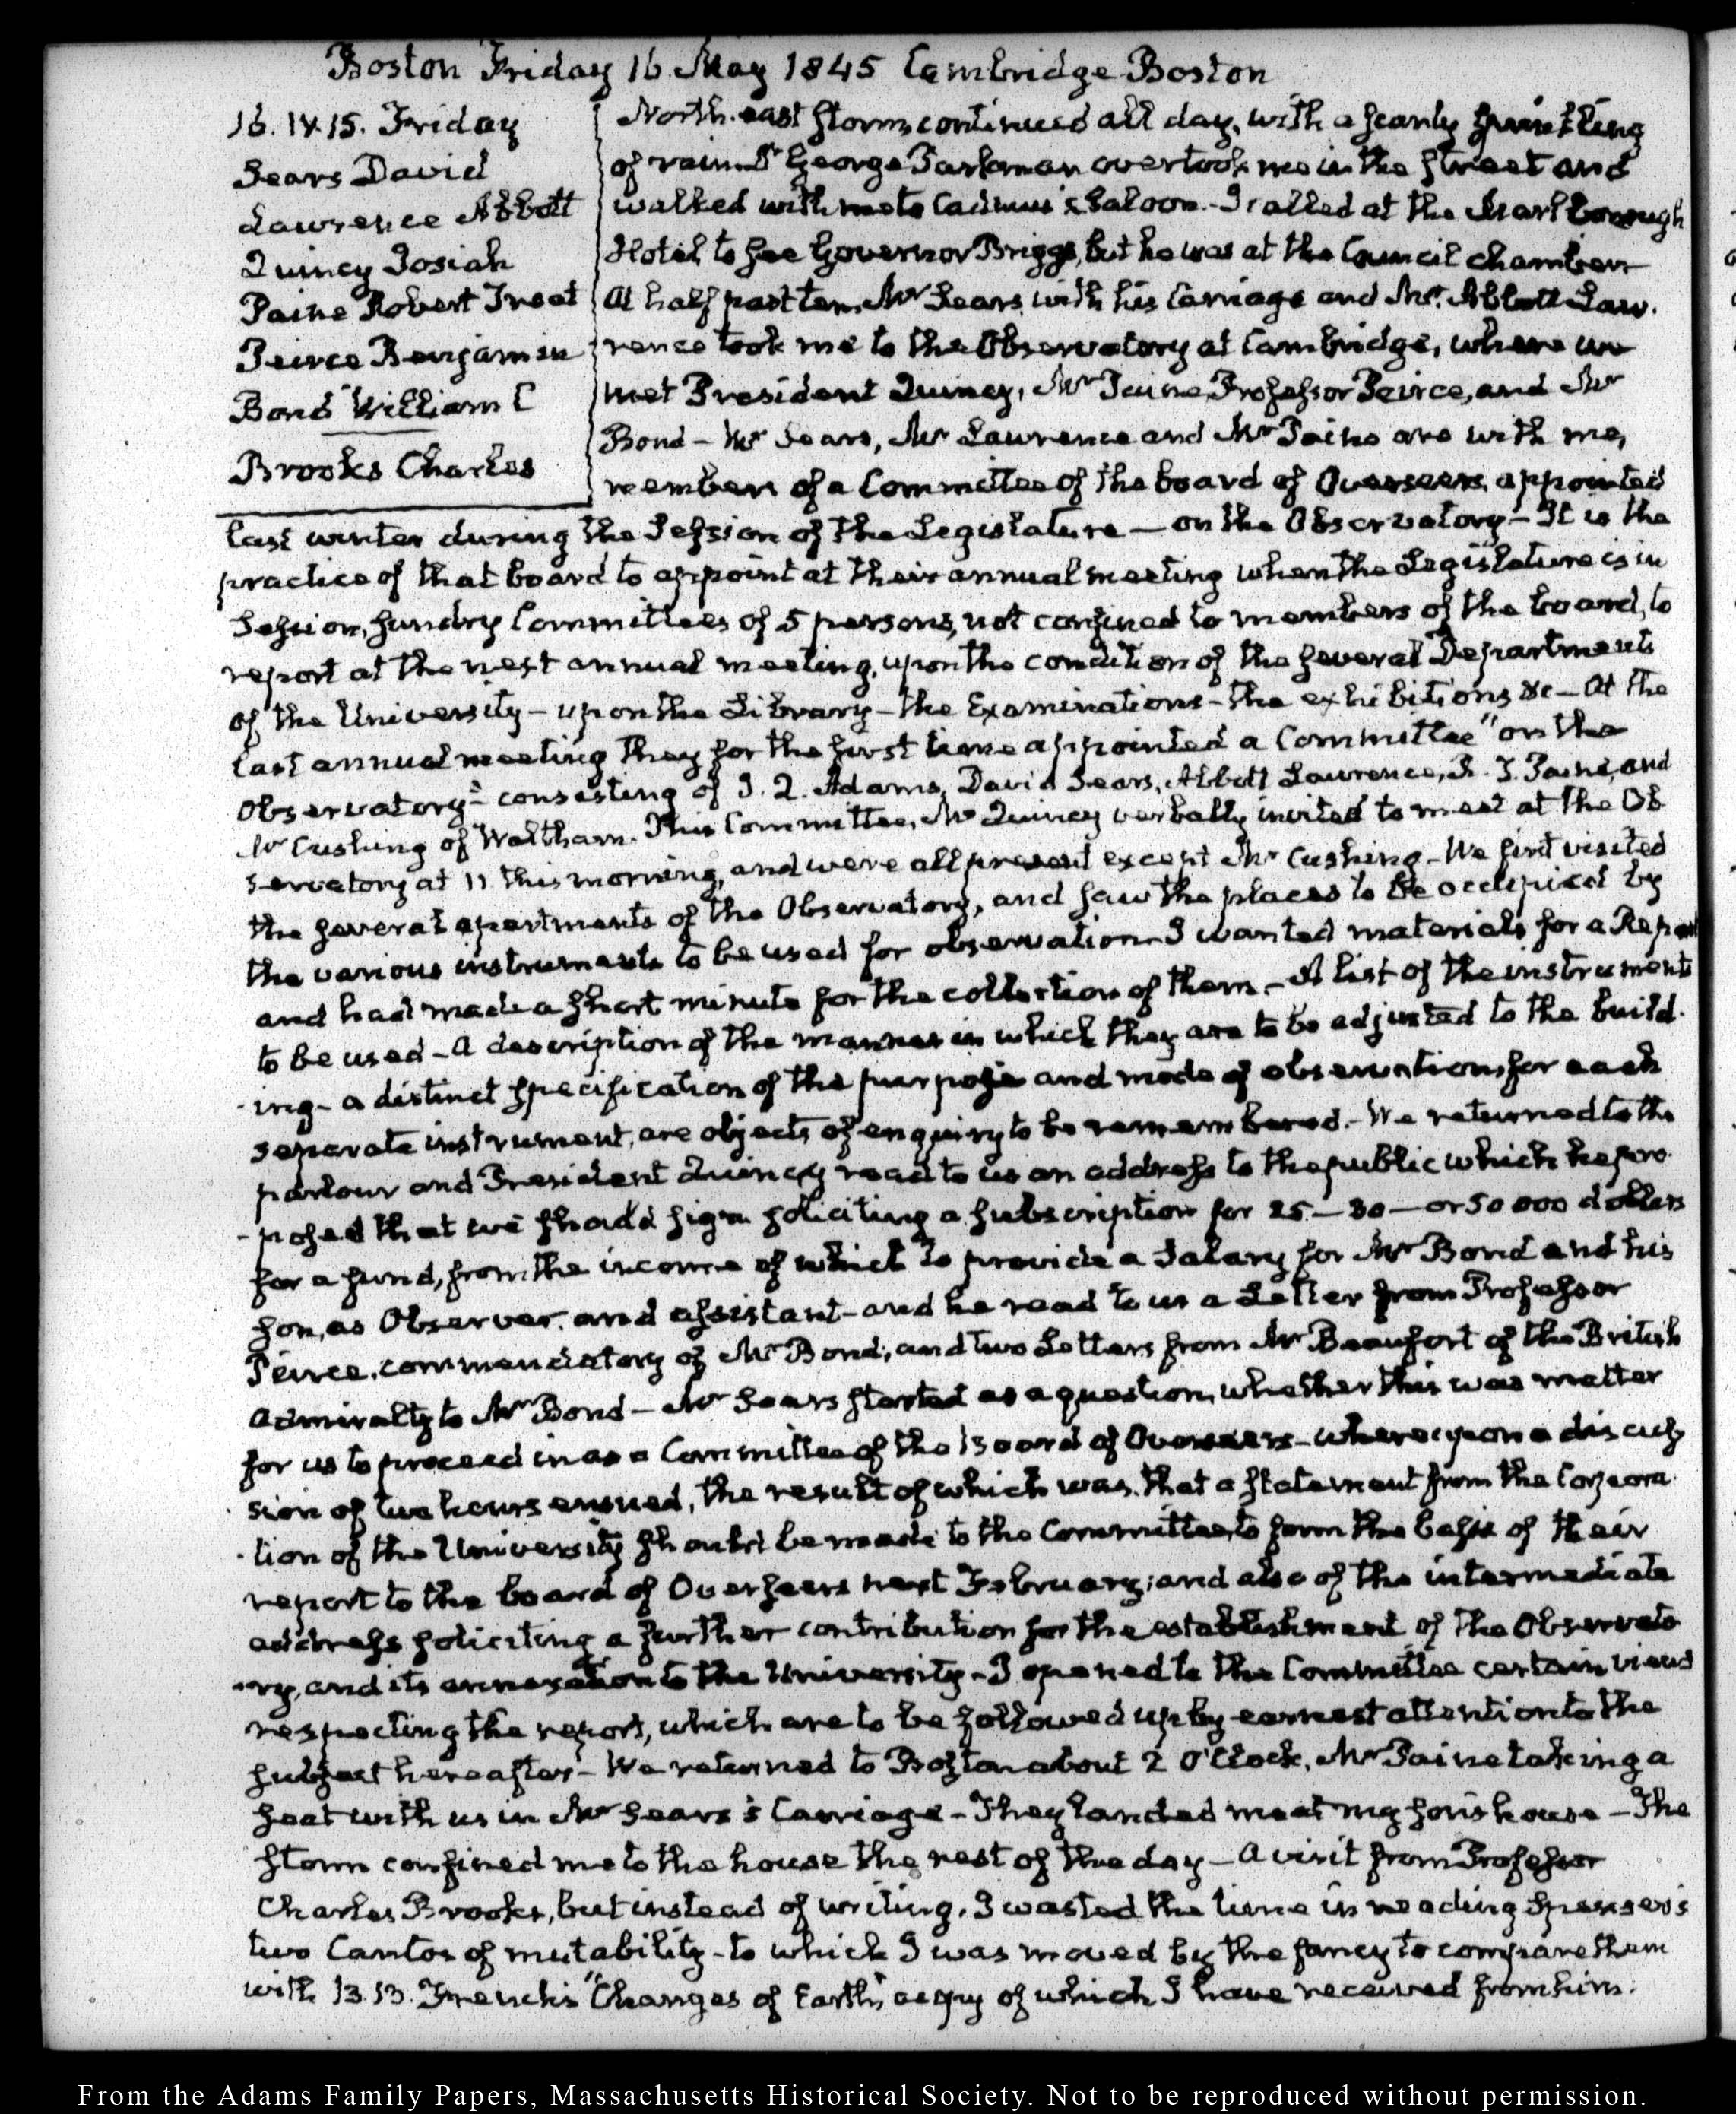 Boston Friday 16. May 1845 Cambridge-Boston
16. IV. 15. Friday
Sears David
Lawrence Abbott
Quincy Josiah
Paine Robert Treat
Peirce Benjamin
Bond William C
Brooks Charles
North-east storm, continued all day, with a scanty sprinkling
of rain. Dr George Parkman overtook me in the street and
walked with me to Cadmus's Saloon. I called at the Marlborough
Hotel, to see Governor Briggs, but he was at the Council chamber
At half past ten, Mr Sears with his Carriage and Mr. Abbott Law-
rence took me to the Observatory at Cambridge, where we
met President Quincy, Mr Paine, Professor Peirce, and Mr
Bond - Mr Sears, Mr Lawrence and Mr Paine are with me,
members of a Committee of the board of Overseers, appointed
last winter during the Session of the Legislature — on the Observatory - It is the
practice of that board to appoint at their annual meeting when the Legislature is in
Session, sundry Committees of 5 persons, not confined to members of the board, to
report at the next annual meeting, upon the condition of the several Departments
of the University - upon the Library - the Examinations - the exhibitions &c - At the
last annual meeting they for the first time appointed a Committee "on the
Observatory" - consisting of J. Q. Adams, David Sears, Abbott Lawrence, R. T. Paine, and
Mr Cushing of Waltham. This Committee, Mr Quincy verbally invited to meet at the Ob
servatory at 11 this morning, and were all present except Mr Cushing - We first visited
the several apartments of the Observatory, and saw the places to be occupied by
the various instruments to be used for observation - I wanted materials for a Report
and had made a short minute for the collection of them - A list of the instruments
to be used - A description of the manner in which they are to be adjusted to the build-
-ing - a distinct specification of the purpose and mode of observation, for each
separate instrument, are objects of enquiry to be remembered. - We returned to the
parlour and President Quincy read to us an address to the public which he pro-
-posed that we should sign soliciting a subscription for 25 — 30 — or 50 000 dollars
for a fund, from the income of which to provide a Salary for Mr Bond and his
son, as Observer, and assistant - and he read to us a Letter from Professor
Peirce, commendatory of Mr Bond; and two Letters from Mr Beaufort of the British
Admiralty to Mr Bond - Mr Sears started as a question, whether this was matter
for us to proceed in as a Committee of the Board of Overseers - whereupon a discus
sion of two hours ensued, the result of which was, that a statement from the Corpora-
-tion of the University should be made to the Committee, to form the basis of their
report to the board of Overseers next February; and also of the intermediate
address soliciting a further contribution for the establishment of the Observato
-ry, and its annexation to the University - I opened to the Committee certain views
respecting the report, which are to be followed up by earnest attention to the
subject hereafter - We returned to Boston about 2 O'Clock, Mr Paine taking a
seat with us in Mr Sears's Carriage - They landed me at my son's house - The
storm confined me to the house the rest of the day - A visit from Professor
Charles Brooks, but instead of writing, I wasted the time in reading Spenser's
two Cantos of mutability - to which I was moved by the fancy to compare them
with B. B. French's "Changes of Earth," a copy of which I have received from him.
From the Adams Family Papers, Massachusetts Historical Society. Not to be reproduced without permission.